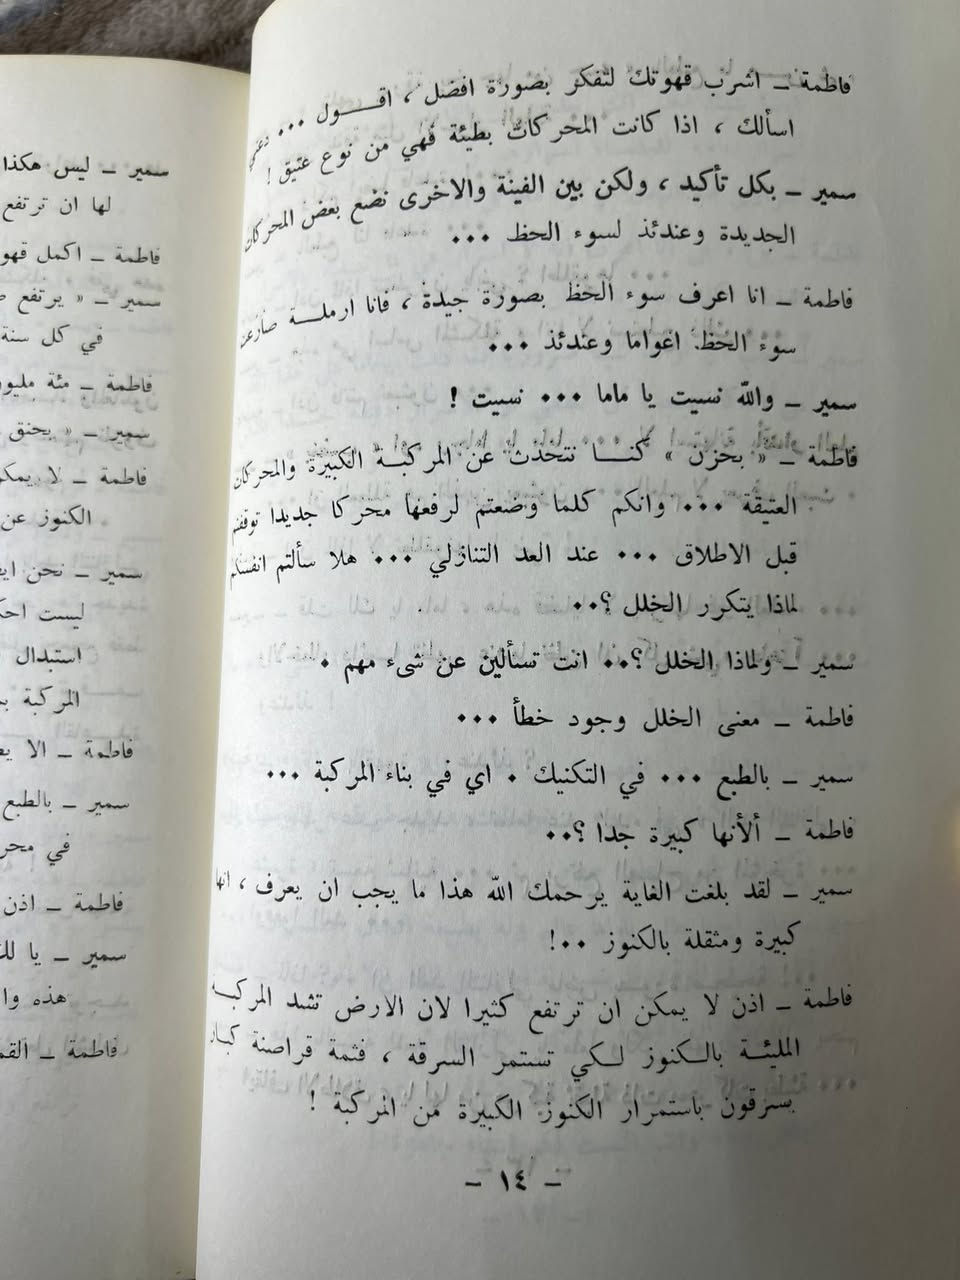 فاطمة ــ اشرب قهوتك لتفكر بصورة افضل ، اقـــول ... دعني
اسألك ، اذا كانت المحركات بطيئة فهي من نوع عتيق !
سمير ــ بكل تأكيد ، ولكن بين الفينة والاخرى نضع بعض المحركات
الجديدة وعندئذ لسوء الحظ ...
فاطمة ــ انا اعرف سوء الحظ بصورة جيدة ، فانا ارملــة صارعت
سوء الحظ اعواما وعندئذ ...
سمير ــ والله نسيت يا ماما ... نسيت !
فاطمة ــ « بحزن » كنــا نتحدث عن المركبـة الكبيرة والمحركات
العتيقة ... وانكم كلما وضعتم لرفعها محركا جديدا توقفتم
قبل الاطلاق ... عند العد التنازلي ... هلا سألتم انفسكم
لماذا يتكرر الخلل ؟..
سمير ــ ولماذا الخلل ؟.. انت تسألين عن شىء مهم .
فاطمة ــ معنى الخلل وجود خطأ ...
سمير ــ بالطبع ... في التكنيك . اي في بناء المركبة ...
فاطمة ــ ألأنها كبيرة جدا ؟..
سمير ــ لقد بلغت الغاية يرحمك الله هذا ما يجب ان يعرف ، انها
كبيرة ومثقلة بالكنوز ..!
فاطمة ــ اذن لا يمكن ان ترتفع كثيرا لان الارض تشد المركبة
المليئة بالكنوز لكي تستمر السرقة ، فثمة قراصنة كبار
يسرقون باستمرار الكنوز الكبيرة من المركبة !
ــ ١٤ ــ
سمير ــ ليس هكذا
لها ان ترتفع
فاطمة ــ اكمل
سمير ــ « يرتفع
في كل سنة
فاطمة ــ مئة
سمير ــ « بحنق
فاطمة ــ لا
الكنوز عن
سمير ــ نحن
ليست
استبدال
المركبة
فاطمة ــ الا
سمير ــ بالطبع
في
فاطمة ــ اذن
سمير ــ يا
هذه
فاطمة ــ